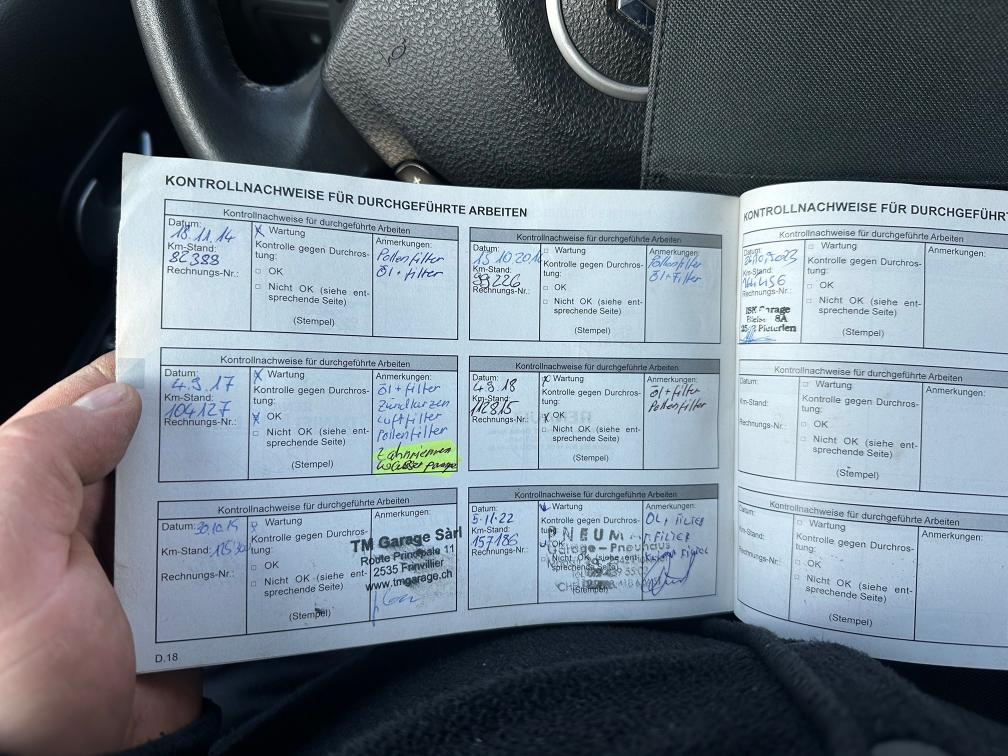 KONTROLLNACHWEISE FÜR DURCHGEFÜHRTE ARBEITEN
Kontrollnachweise für durchgeführte Arbeiten
Datum: 18.11.14
Km-Stand: 82388
Rechnungs-Nr.:
x Wartung
Kontrolle gegen Durchros-
tung:
OK
Nicht OK (siehe ent-
sprechende Seite)
(Stempel)
Anmerkungen:
Pollenfilter
Öl + filter
Kontrollnachweise für durchgeführte Arbeiten
Datum:
Km-Stand: 99226
Rechnungs-Nr.:
Wartung
Kontrolle gegen Durchros-
tung:
OK
Nicht OK (siehe ent-
sprechende Seite)
(Stempel)
Anmerkungen:
Pollenfilter
Öl + Filter
Kontrollnachweise für durchgeführte Arbeiten
Datum: 4.9.17
Km-Stand: 104127
Rechnungs-Nr.:
x Wartung
Kontrolle gegen Durchros-
tung:
x OK
Nicht OK (siehe ent-
sprechende Seite)
(Stempel)
Anmerkungen:
Öl + filter
Zündkerzen
Luftfilter
Pollenfilter
Zahnriemen
Wasserpumpe
Kontrollnachweise für durchgeführte Arbeiten
Datum: 4.9.18
Km-Stand: 112815
Rechnungs-Nr.:
x Wartung
Kontrolle gegen Durchros-
tung:
x OK
Nicht OK (siehe ent-
sprechende Seite)
(Stempel)
Anmerkungen:
Öl + filter
Pollenfilter
Kontrollnachweise für durchgeführte Arbeiten
Datum: 30.10.19
Km-Stand:
Rechnungs-Nr.:
Wartung
Kontrolle gegen Durchros-
tung:
OK
Nicht OK (siehe ent-
sprechende Seite)
(Stempel)
Anmerkungen:
TM Garage Sàrl
Route Principale 11
2535 Frinvillier
www.tmgarage.ch
Kontrollnachweise für durchgeführte Arbeiten
Datum: 5.11.22
Km-Stand: 157186
Rechnungs-Nr.:
Wartung
Kontrolle gegen Durchros-
tung:
OK
Nicht OK (siehe ent-
(Stempel)
Anmerkungen:
ÖL + FILTER
FILTER
PNEUM
Garage-Pneuhaus
D.18
KONTROLLNACHWEISE FÜR DURCHGEFÜHRT
Kontrollnachweise für durchgeführte Arbeiten
Datum:
Km-Stand:
Rechnungs-Nr.:
Wartung
Kontrolle gegen Durchros-
tung:
OK
Nicht OK (siehe ent-
sprechende Seite)
(Stempel)
Anmerkungen:
Garage
8A
Pieterlen
Kontrollnachweise für durchgeführte Arbeiten
Datum:
Km-Stand:
Rechnungs-Nr.:
Wartung
Kontrolle gegen Durchros-
tung:
OK
Nicht OK (siehe ent-
sprechende Seite)
(Stempel)
Anmerkungen:
Kontrollnachweise für durchgeführte Arbeiten
Datum:
Km-Stand:
Rechnungs-Nr.:
Wartung
Kontrolle gegen Durchros-
tung:
OK
Nicht OK (siehe ent-
sprechende Seite)
(Stempel)
Anmerkungen: